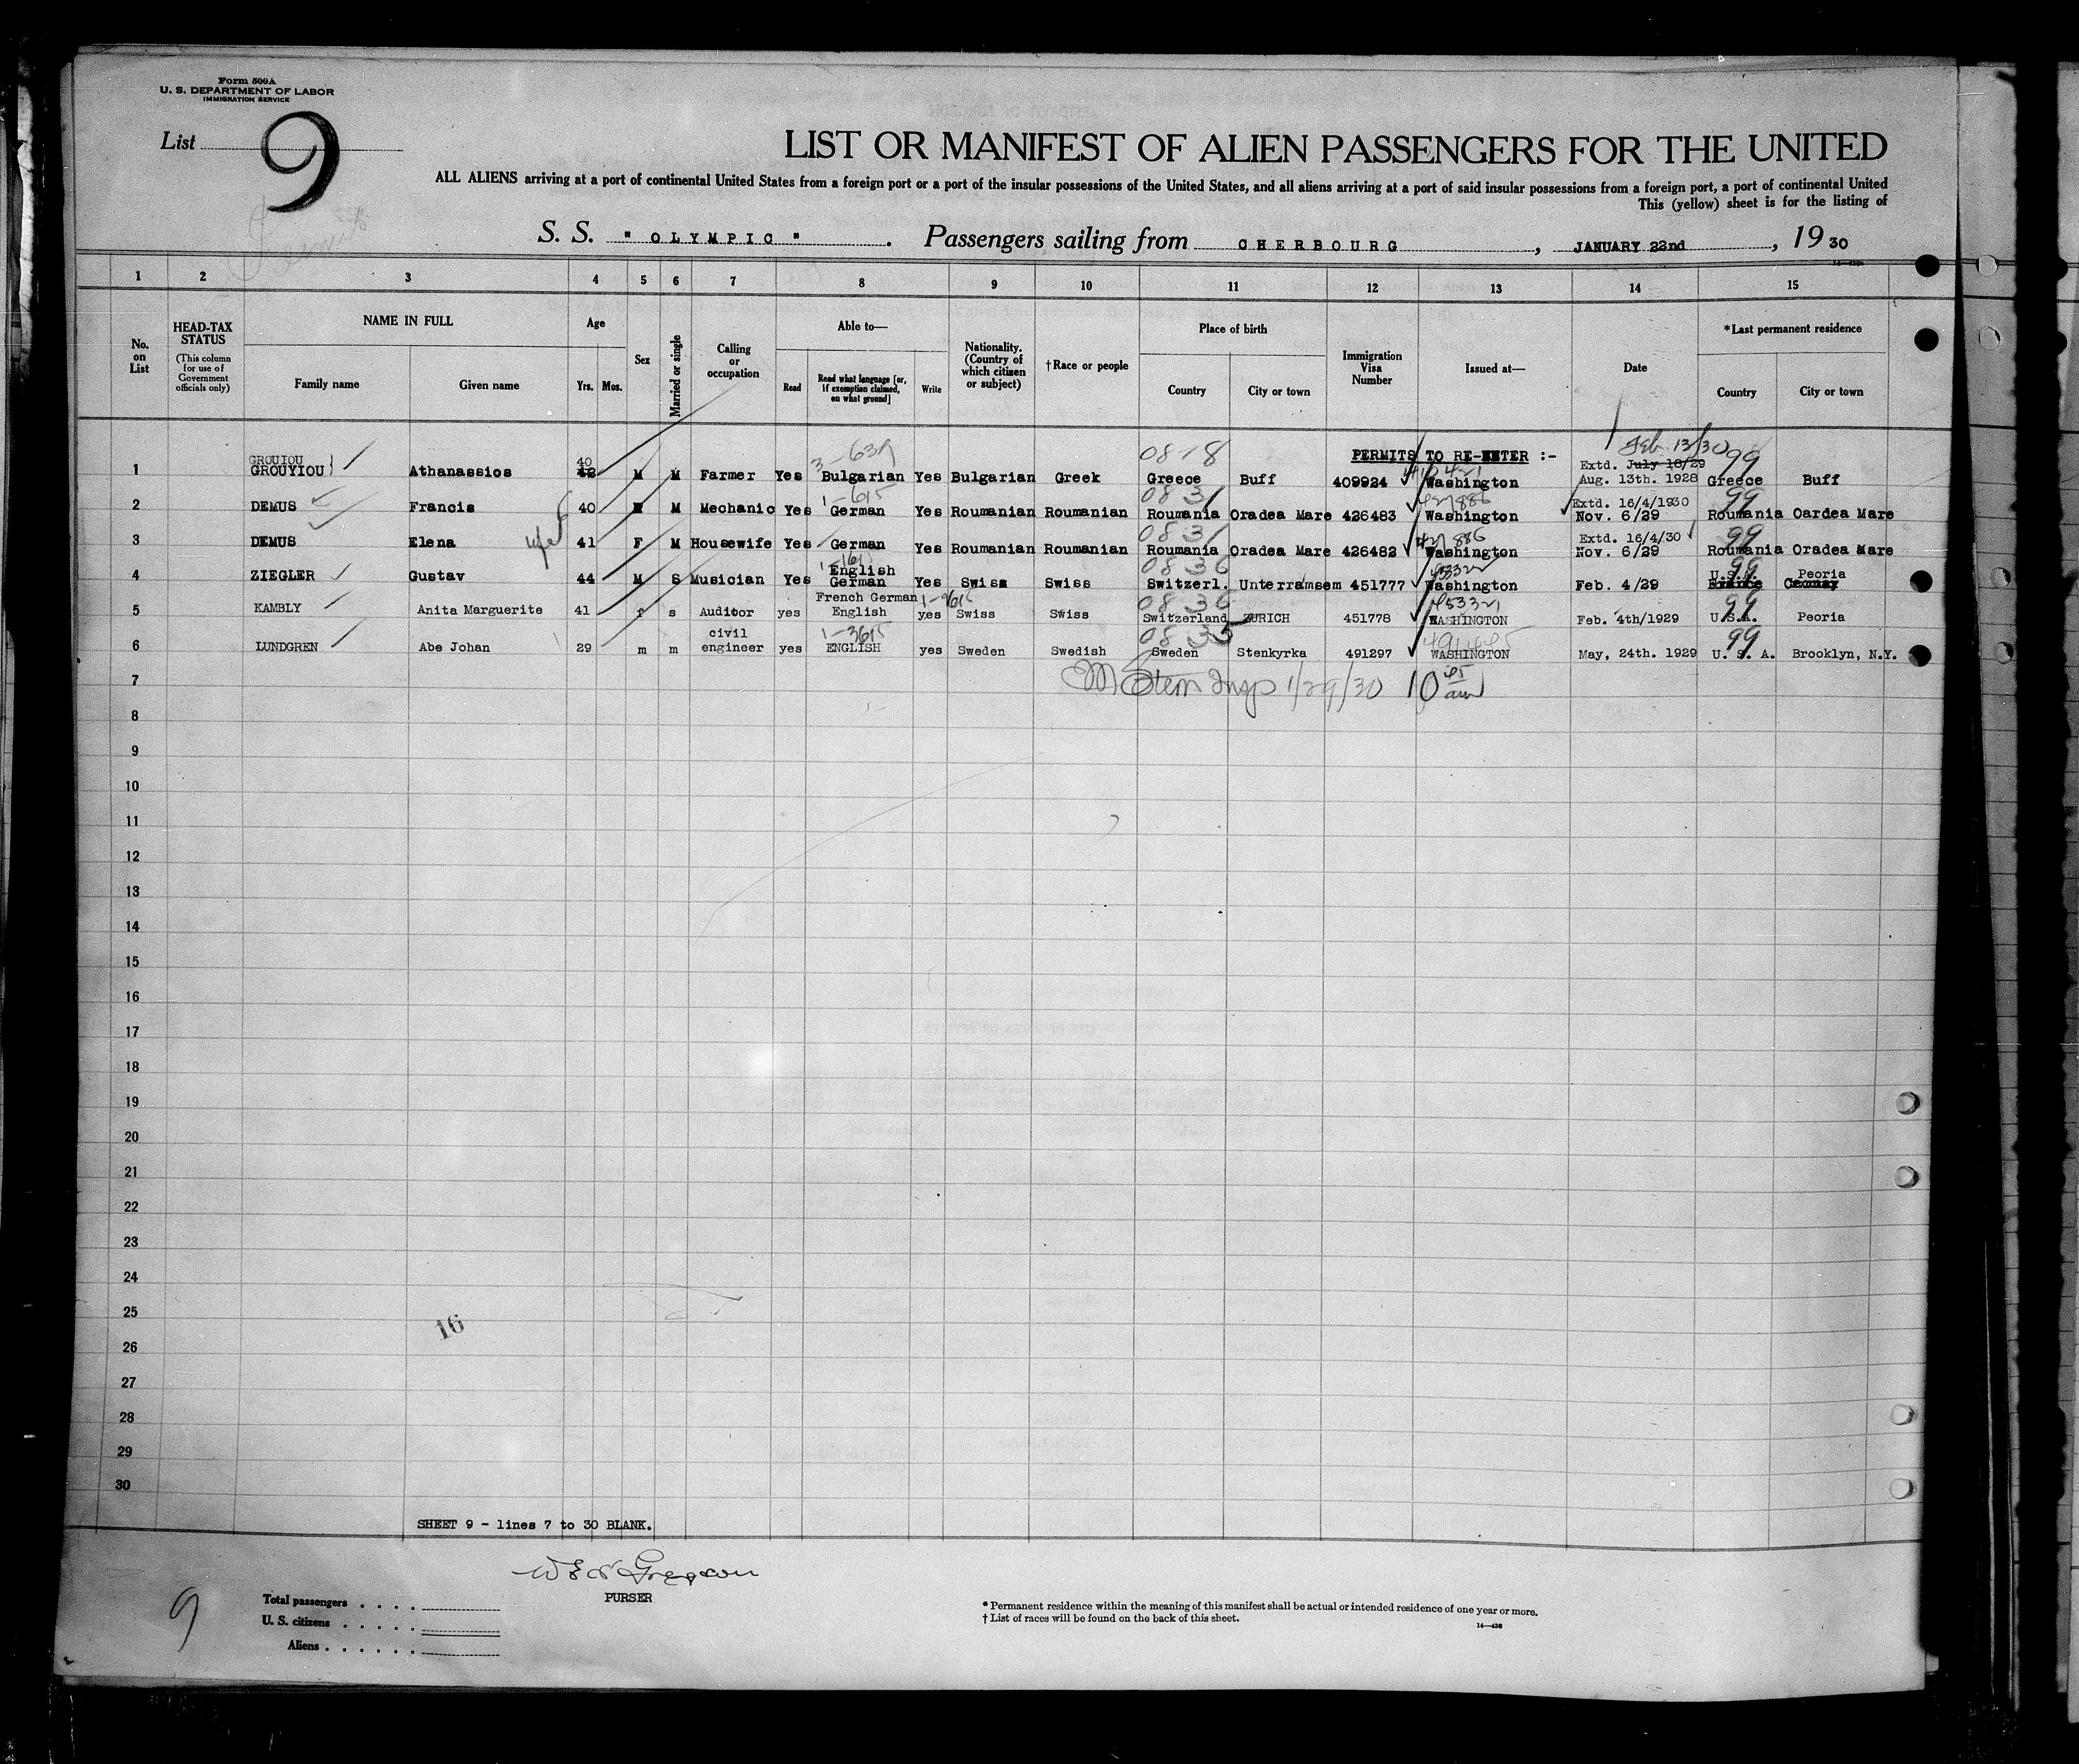 Form 500A
U. S. DEPARTMENT OF LABOR
IMMIGRATION SERVICE
List 9
LIST OR MANIFEST OF ALIEN PASSENGERS FOR THE UNITED
ALL ALIENS arriving at a port of continental United States from a foreign port or a port of the insular possessions of the United States, and all aliens arriving at a port of said insular possessions from a foreign port, a port of continental United
This (yellow) sheet is for the listing of
S. S. "OLYMPIC". Passengers sailing from CHERBOURG, JANUARY 22nd, 1930
1 2 3 4 5 6 7 8 9 10 11 12 13 14 15
No. on List
HEAD-TAX STATUS
(This column for use of Government officials only)
NAME IN FULL
Family name Given name
Age
Yrs. Mos.
Sex
Married or single
Calling or occupation
Able to—
Read Read what language [or, if exemption claimed, on what ground] Write
Nationality. (Country of which citizen or subject)
†Race or people
Place of birth
Country City or town
Immigration Visa Number
Issued at—
Date
*Last permanent residence
Country City or town
PERMITS TO RE-ENTER :-
Feb. 13/30
GROUIOU 40 3-637 08-8 Extd. July 18/29 99
1 GROUYIOU Athanassios 42 M M Farmer Yes Bulgarian Yes Bulgarian Greek Greece Buff 409924 Washington Aug. 13th. 1928 Greece Buff
1-615 08 31 427886 Extd. 16/4/1930 99
2 DEMUS Francis 40 M M Mechanic Yes German Yes Roumanian Roumanian Roumania Oradea Mare 426483 Washington Nov. 6/29 Roumania Oardea Mare
wife 08 31 427886 Extd. 16/4/30 99
3 DEMUS Elena 41 F M Housewife Yes German Yes Roumanian Roumanian Roumania Oradea Mare 426482 Washington Nov. 6/29 Roumania Oradea Mare
1-161 English 08 36 U.S. 99 Peoria
4 ZIEGLER Gustav 44 M S Musician Yes German Yes Swiss Swiss Switzerl. Unterramsem 451777 Washington Feb. 4/29 France
French German 1-9615 08 36 453321 99
5 KAMBLY Anita Marguerite 41 f s Auditor yes English yes Swiss Swiss Switzerland ZURICH 451778 WASHINGTON Feb. 4th/1929 U.S.A. Peoria
civil 1-3615 08 35 99
6 LUNDGREN Abe Johan 29 m m engineer yes ENGLISH yes Sweden Swedish Sweden Stenkyrka 491297 WASHINGTON May, 24th. 1929 U. S. A. Brooklyn, N.Y.
7 M Stern Insp 1/29/30 10 45 am
8
9
10
11
12
13
14
15
16
17
18
19
20
21
22
23
24
25
16
26
27
28
29
30
SHEET 9 - lines 7 to 30 BLANK.
PURSER
9
Total passengers
U. S. citizens
Aliens
* Permanent residence within the meaning of this manifest shall be actual or intended residence of one year or more.
† List of races will be found on the back of this sheet.